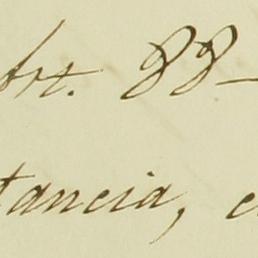 Art. 88-
tancia, e